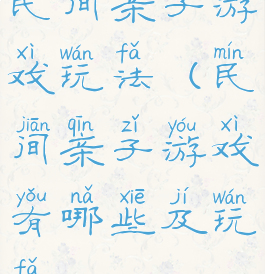 民间亲子游
xì wán fǎ mín
戏玩法（民
jiān qīn zǐ yóu xì
间亲子游戏
yǒu nǎ xiē jí wán
有哪些及玩
fǎ